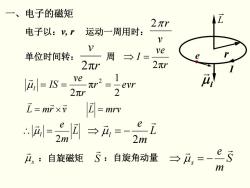 一、电子的磁矩
电子以：v, r 运动一周用时：2πr/v
单位时间转：v/2πr 周 ⇒ I = ve/2πr
|μ⃗ₗ| = IS = ve/2πr πr² = 1/2 evr
L⃗ = mr⃗ × v⃗ |L⃗| = mrv
∴|μ⃗ₗ| = e/2m |L⃗| ⇒ μ⃗ₗ = - e/2m L⃗
μ⃗ₛ：自旋磁矩 S⃗：自旋角动量 ⇒ μ⃗ₛ = - e/m S⃗
L⃗
e
r
I
μ⃗ₗ